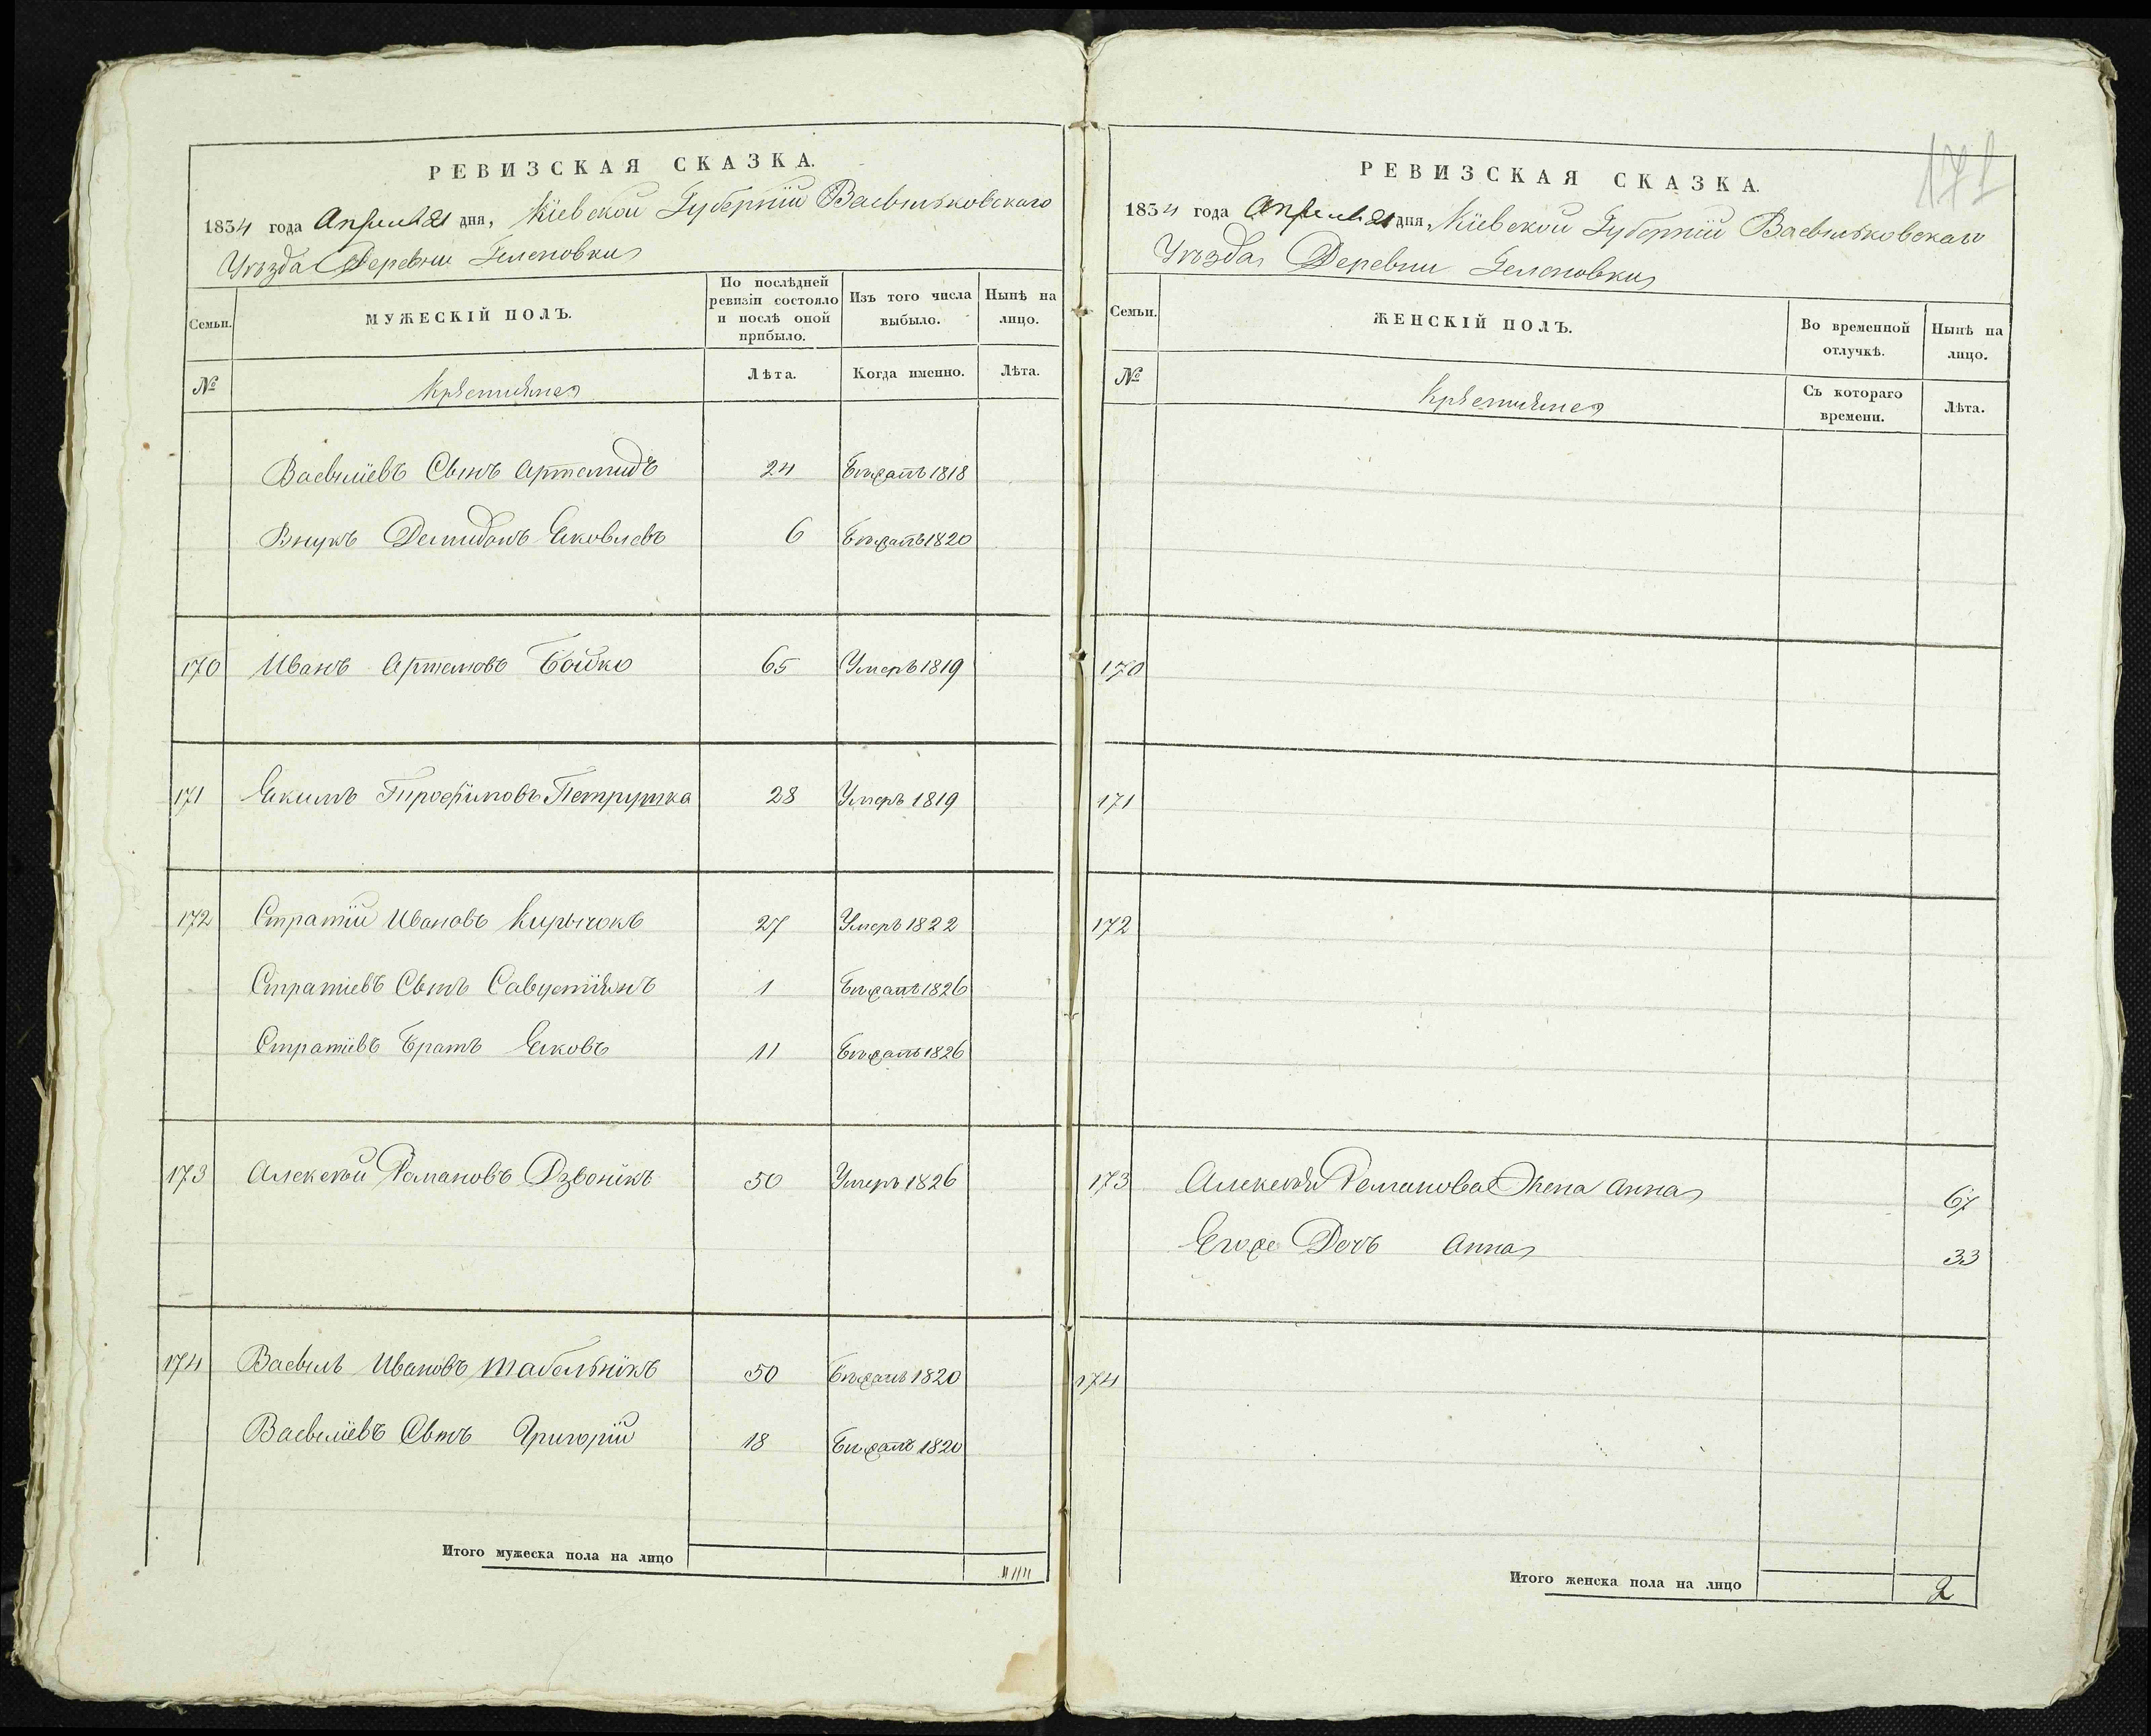 РЕВИЗСКАЯ СКАЗКА.
1834 года Апреля 21 дня, Кіевской Губерніи Васыльковскаго
Уѣзда Деревни Гелоновки
Семьи.
МУЖЕСКІЙ ПОЛЪ.
По послѣдней ревизіи состояло и послѣ оной прибыло.
Изъ того числа выбыло.
Нынѣ на лицо.
№
Крѣстияне
Лѣта.
Когда именно.
Лѣта.
Васыліевъ Сынъ Артемидъ 24 Бѣжалъ 1818
Внукъ Демидонъ Яковлевъ 6 Бѣжалъ 1820
170 Иванъ Артемовъ Бойко 65 Умеръ 1819
171 Якимъ Трофимовъ Петрушка 28 Умеръ 1819
172 Стратій Ивановъ Кирычокъ 27 Умеръ 1822
Стратіевъ Сынъ Савустіянъ 1 Бѣжалъ 1826
Стратіевъ Братъ Яковъ 11 Бѣжалъ 1826
173 Алексѣй Романовъ Дзвонікъ 50 Умеръ 1826
174 Васыль Ивановъ Табельнікъ 50 Бѣжалъ 1820
Васыліевъ Сынъ Григорій 18 Бѣжалъ 1820
Итого мужеска пола на лицо
РЕВИЗСКАЯ СКАЗКА.
171
1834 года Апреля 21 дня, Кіевской Губерніи Васыльковскаго
Уѣзда Деревни Гелоновки
Семьи.
ЖЕНСКІЙ ПОЛЪ.
Во временной отлучкѣ.
Нынѣ на лицо.
№
Крѣстияне
Съ котораго времени.
Лѣта.
170
171
172
173 Алексѣя Романова Жена Анна 67
Егоже Дочь Анна 33
174
Итого женска пола на лицо 2